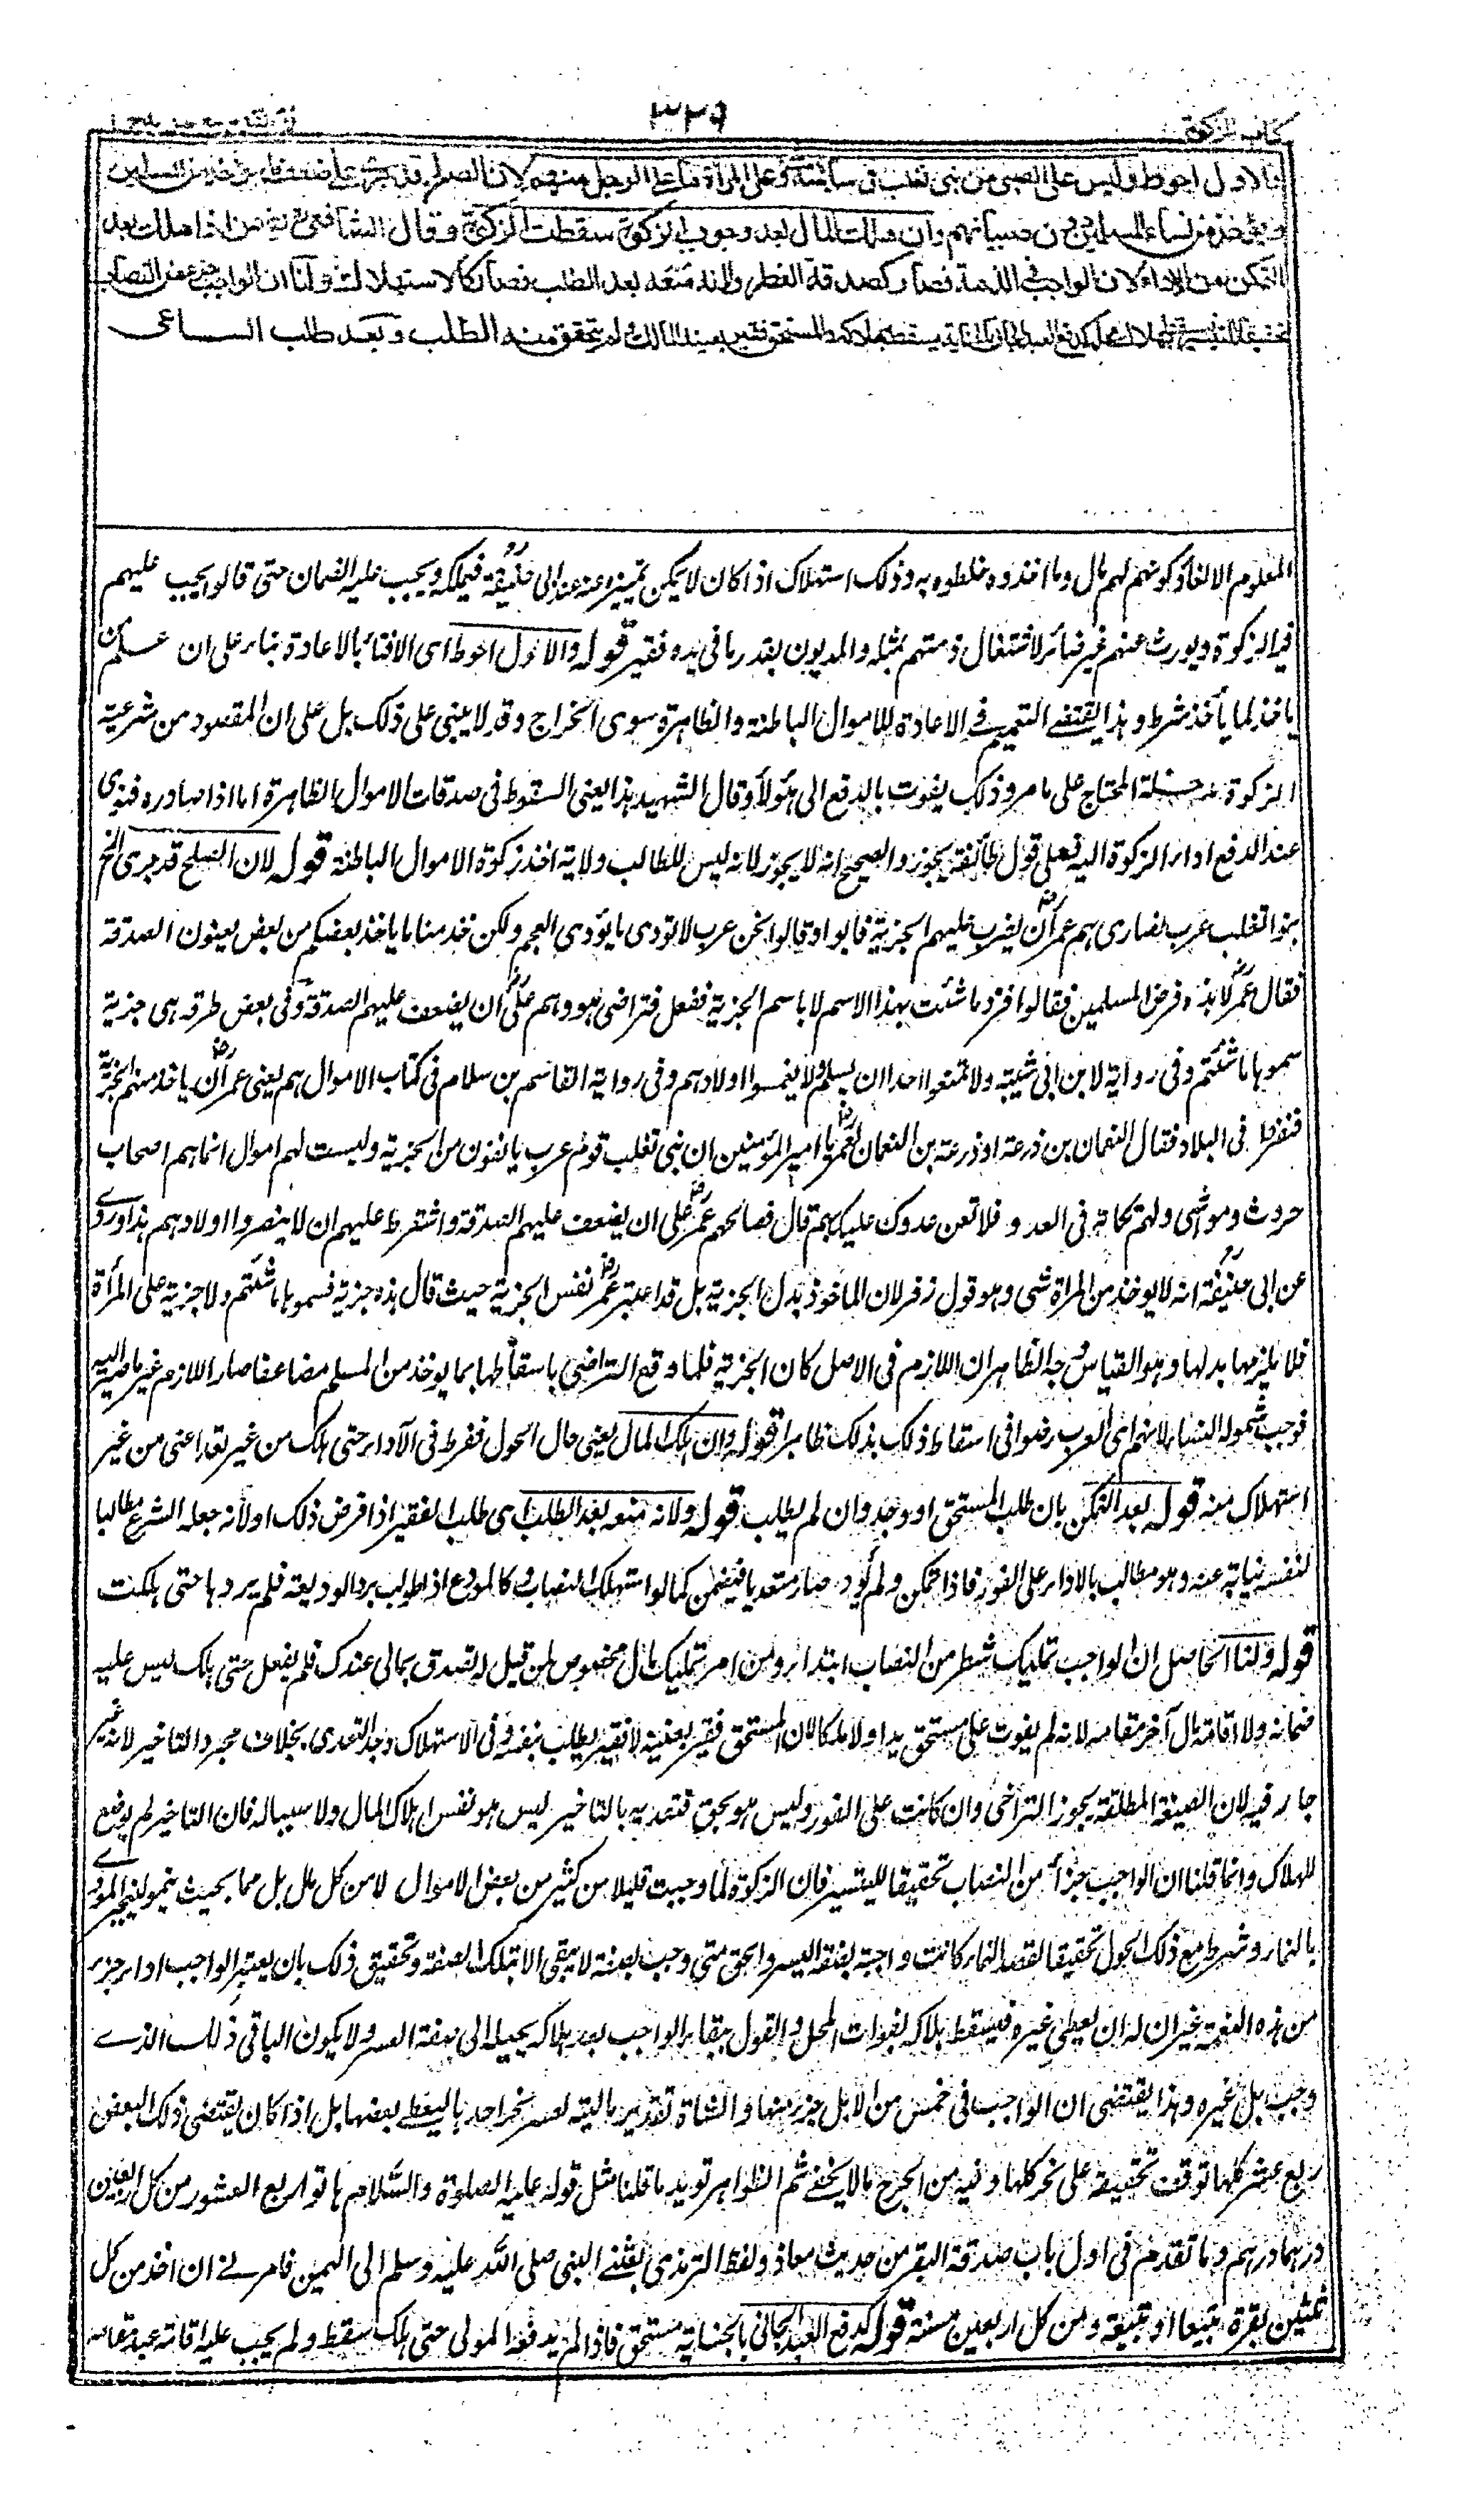 كتاب الزكوة
٣٢٩
فتح القدير مع هدايه ج ١
فالاول احوط وليس على الصبى من بنى تغلب فى سائمته شئ وعلى المرأة ما على الرجل منهم لان الصلح قد جرى على ضعف ما يؤخذ من المسلمين
ويؤخذ من نساء المسلمين دون صبيانهم وان هلك المال بعد وجوب الزكوة سقطت الزكوة وقال الشافعى يضمن اذا هلك بعد
التمكن من الاداء لان الواجب فى الذمة فصار كصدقة الفطر ولانه منعه بعد الطلب فصار كالاستهلاك ولنا ان الواجب جزء من النصاب
تحقيقا للتيسير فيسقط بهلاك محله كدفع العبد الجانى بالجناية يسقط بهلاكه والمستحق فقير يعينه المالك ولم يتحقق منه الطلب وبعد طلب الساعى
المعلوم الا لفاد كونهم لهم مال وما اخذوه خلطوه به وذلك استهلاك اذا كان لا يمكن تمييزه عنه عند ابى حنيفة فيملكه ويجب عليه الضمان حتى قالوا يجب عليهم
فيه الزكوة ويورث عنهم غير ضائر لاشتغال ذمتهم بمثله والمديون بقدر ما فى يده فقير قوله والاول احوط اى الافتاء بالاعادة بناء على ان علم من
ياخذ لما يأخذ شرط وهذا يقتضى التعميم فى الاعادة للاموال الباطنة والظاهرة سوى الخراج وقد لا يبتنى على ذلك بل على ان المقصود من شرعية
الزكوة سد خلة المحتاج على ما مر وذلك يفوت بالدفع الى هؤلاء وقال الشهيد هذا يعنى السقوط فى صدقات الاموال الظاهرة اما اذا صادره فنوى
عند الدفع اداء الزكوة اليه فعلى قول طائفة يجوز والصحيح انه لا يجوز لانه ليس للطالب ولاية اخذ زكوة الاموال الباطنة قوله لان الصلح قد جرى الخ
بنو تغلب عرب نصارى هم عمر ان يضرب عليهم الجزية فابوا وقالوا نحن عرب لا نودى ما يؤدى العجم ولكن خذ منا ما ياخذ بعضكم من بعض يعنون الصدقة
فقال عمر لا هذه فرض المسلمين فقالوا فزد ما شئت بهذا الاسم لا باسم الجزية ففعل فتراضى هو وهم على ان يضعف عليهم الصدقة وفى بعض طرقه هى جزية
سموها ما شئتم وفى رواية لابن ابى شيبة ولا تمنعوا احدا ان يسلم ولا يغمسوا اولادهم وفى رواية القاسم بن سلام فى كتاب الاموال هم يعنى عمر ان ياخذ منهم الجزية
فتفرقوا فى البلاد فقال النعمان بن زرعة او زرعة بن النعمان لعمر يا امير المؤمنين ان بنى تغلب قوم عرب يانفون من الجزية وليست لهم اموال انما هم اصحاب
حروث ومواشى ولهم نكاية فى العدو فلا تعن عدوك عليك بهم قال فصالحهم عمر على ان يضعف عليهم الصدقة واشترط عليهم ان لا ينصروا اولادهم هذا وروى
عن ابى حنيفة انه لا يوخذ من المراة شى وهو قول زفر لان الماخوذ بدل الجزية بل قد اعتبر عمر نفس الجزية حيث قال هذه جزية فسموها ما شئتم ولا جزية على المرأة
فلا يلزمها بدلها وهو القياس وجه الظاهر ان اللازم فى الاصل كان الجزية فلما وقع التراضى باسقاطها بما يوخذ من المسلم مضاعفا صار اللازم غير ما صير اليه
فوجب شموله النساء لانهم اى العرب رضوا فى اسقاط ذلك بذلك ظاهرا قوله وان هلك المال يعنى حال الحول ففرط فى الاداء حتى هلك من غير تعد اعنى من غير
استهلاك منه قوله بعد التمكن بان طلب المستحق او وجد وان لم يطلب قوله ولانه منعه بعد الطلب اى طلب الفقير اذا فرض ذلك او لانه جعله الشرع مطالبا
لنفسه نيابة عنه وهو مطالب بالاداء على الفور فاذا تمكن ولم يؤد صار متعديا فيضمن كما لو استهلك النصاب وكالمودع اذا طولب برد الوديعة فلم يردها حتى هلكت
قوله ولنا الحاصل ان الواجب تمليك شطر من النصاب ابتداء ومن امر بتمليك مال مخصوص كمن قيل له تصدق بمالى عندك فلم يفعل حتى هلك ليس عليه
ضمانه ولا اقامة مال آخر مقامه لانه لم يفوت على مستحق يدا ولا ملكا لان المستحق فقير بعينه لا فقير يطلب بنفسه وفى الاستهلاك وجد التعدى بخلاف مجرد التاخير لانه غير
جان فيه لان الصيغة المطلقة يجوز التراخى وان كانت على الفور وليس هو بحق فتعديه بالتاخير ليس هو نفس اهلاك المال ولا سببا له فان التاخير لم يوضع
للهلاك وانما قلنا ان الواجب جزأ من النصاب تحقيقا للتيسير فان الزكوة لما وجبت قليلا من كثير من بعض الاموال لا من كل مال بل مما بحيث ينمو لينجبر المؤدى
بالنماء وشرط مع ذلك الحول تحقيقا لقصد النماء كانت واجبة بصفة اليسر والحق متى وجب بصفة لا يبقى الا بتلك الصفة وتحقيق ذلك بان يعتبر الواجب اداء جزء
من هذه النعمة غير ان له ان يعطى غيره فيسقط بهلاكه لفوات المحل والقول ببقاء الواجب بعد هلاكه يحيله الى صفة العسر ولا يكون الباقى ذلك الذى
وجب بل غيره وهذا يقتضى ان الواجب فى خمس من الابل جزء منها والشاة تقدير ماليته لعسر نحر احدها ليعطى بعضها بل اذا كان يقتضى ذلك البعض
ربع عشر كلها توقف تحقيقه على نحر كلها وفيه من الحرج ما لا يخفى ثم الظواهر تويد ما قلنا مثل قوله عليه الصلوة والسلام هاتوا ربع العشور من كل اربعين
درهما درهم وما تقدم فى اول باب صدقة البقر من حديث معاذ ولفظ الترمذى بعثنى النبى صلى الله عليه وسلم الى اليمين فامرنى ان اخذ من كل
ثلثين بقرة تبيعا او تبيعة ومن كل اربعين مسنة قوله كدفع العبد الجانى بالجناية مستحق فاذا لم يدفعه المولى حتى هلك سقط ولم يجب عليه اقامة عبد مقامه